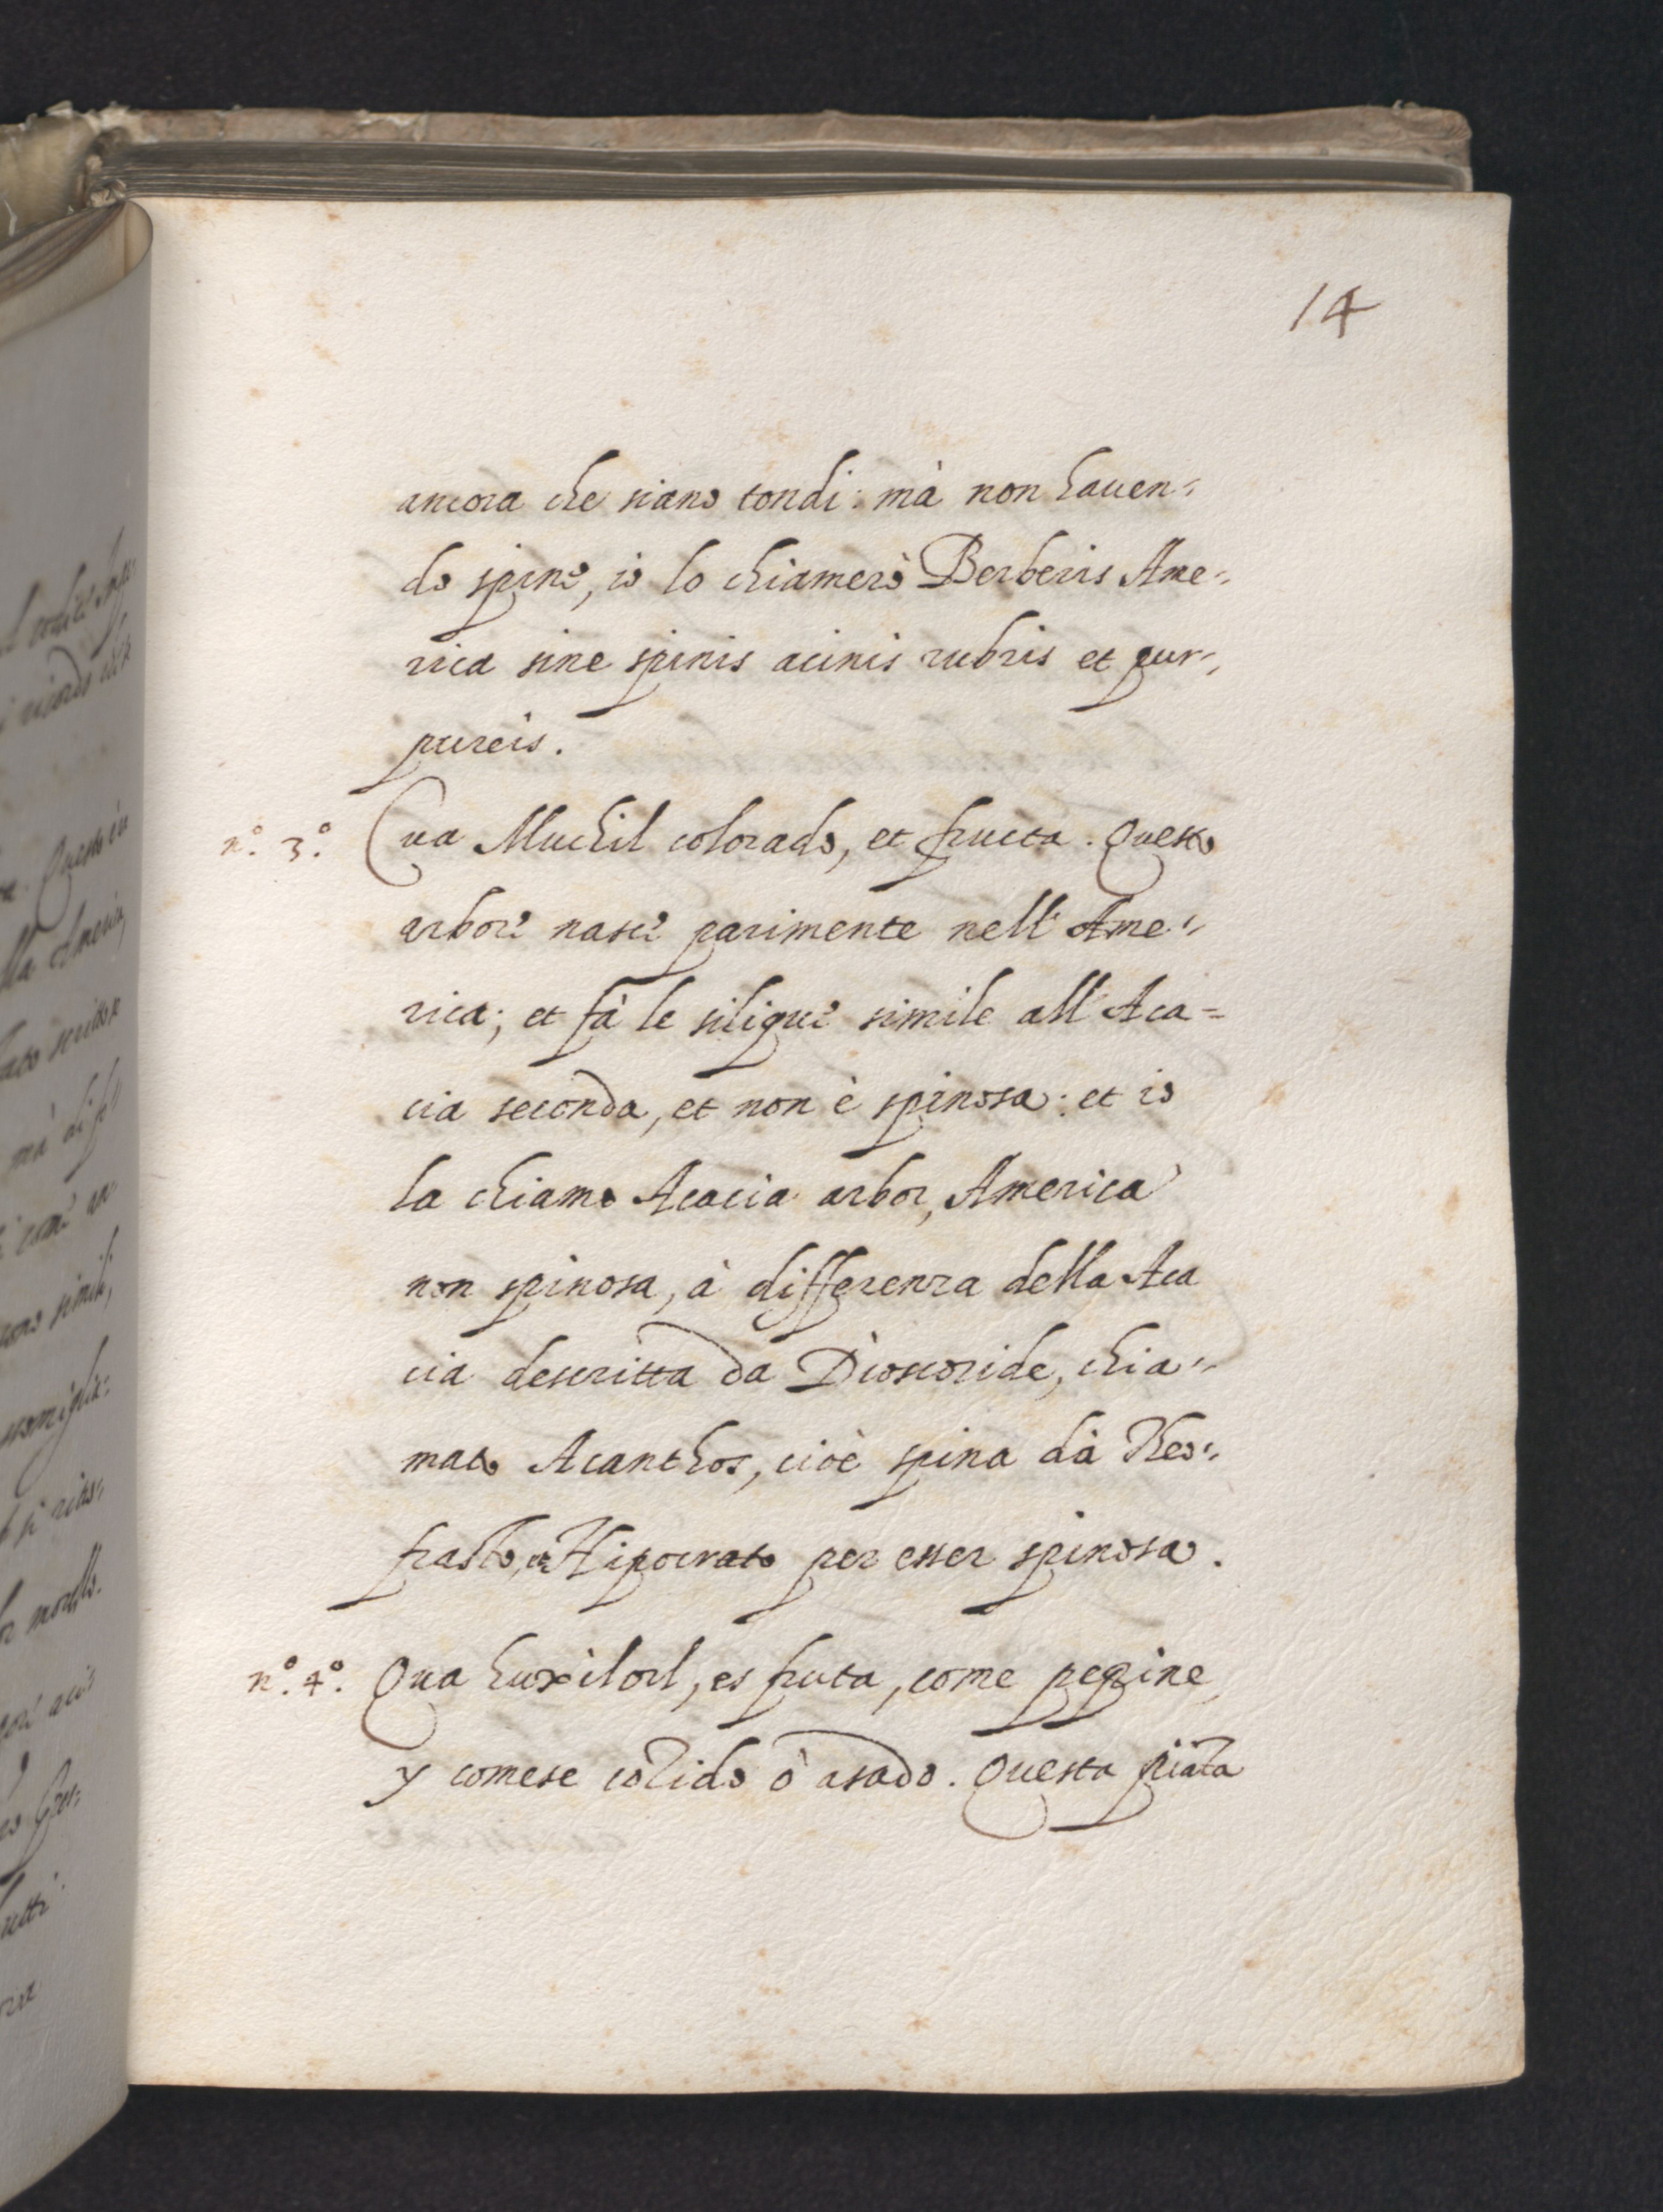 14
ancora che siano tondi: mà non hauen-
do spine, io lo chiamerò Berberis Ame-
rica sine spinis acinis rubris et pur-
pureis.
n.º 3.º Cua Muchil colorado, et fructa. Questo
arbore nasce parimente nell'Ame-
rica; et fà le silique simile all'Aca=
cia seconda, et non è spinosa: et io
la chiamo Acacia arbor, America
non spinosa, à differenza della Aca
cia descritta da Dioscoride, chia-
mato Acanthos, cioè spina dà Theo-
frasto, et Hipocrato per esser spinosa.
n.º 4.º Qua huxilotl, es fruta, come pepine,
y comese cozido ò asado. Questa piãta